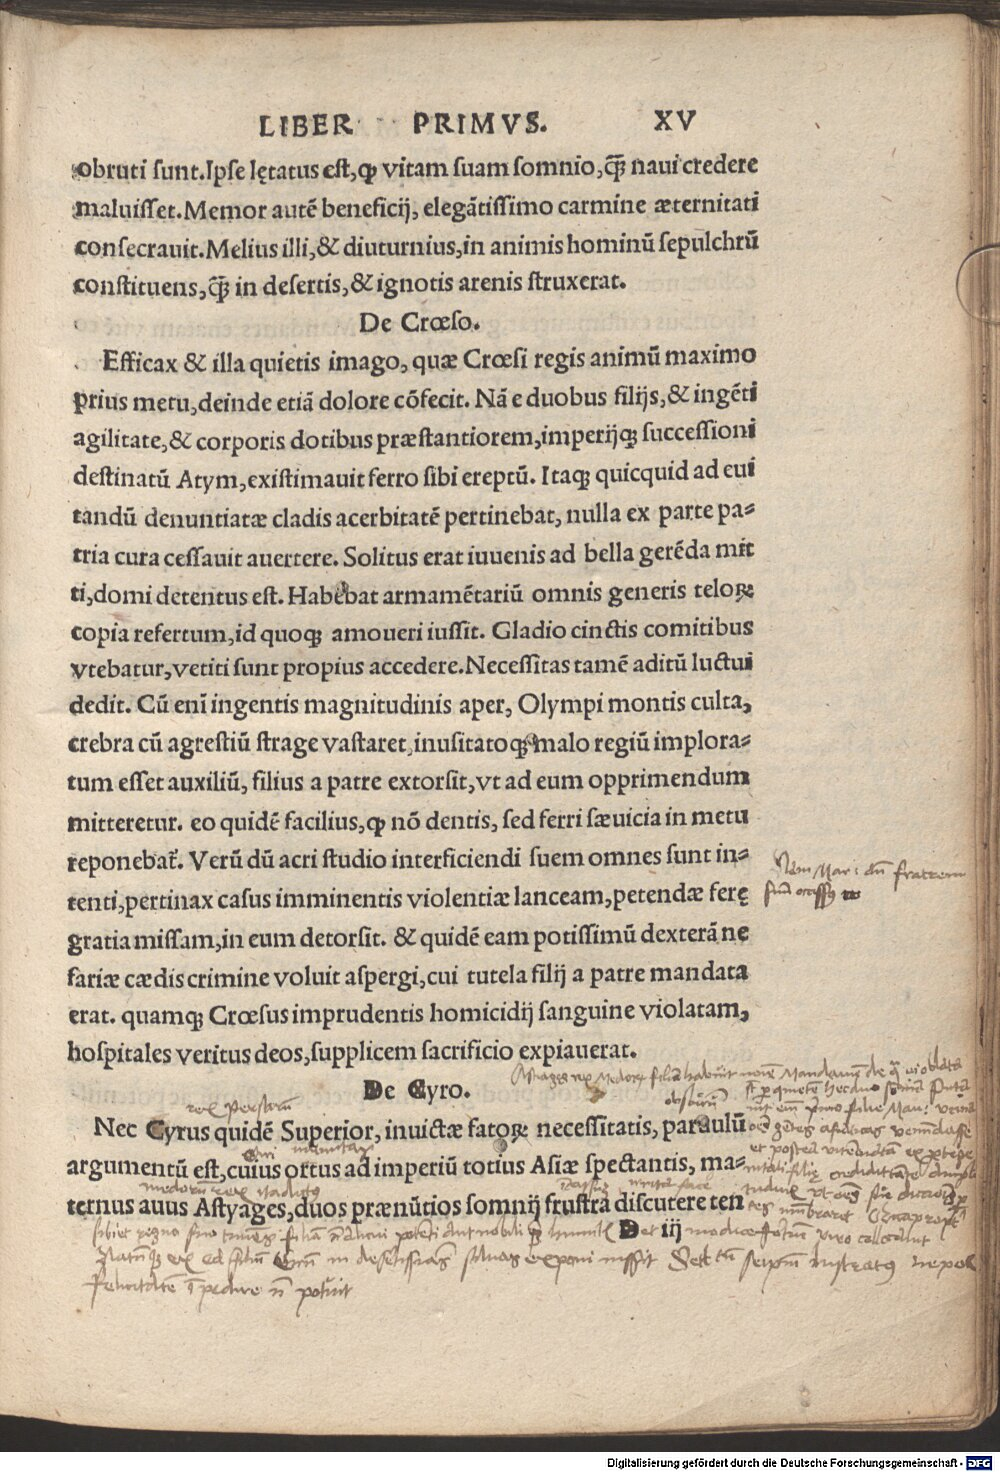 LIBER PRIMVS. XV
obruti sunt. Ipse lętatus est, ꝙ vitam suam somnio, q̃ꝫ naui credere
maluisset. Memor autẽ beneficij, elegãtissimo carmine æternitati
consecrauit. Melius illi, & diuturnius, in animis hominũ sepulchrũ
constituens, q̃ꝫ in desertis, & ignotis arenis struxerat.
De Crœso.
Efficax & illa quietis imago, quæ Crœsi regis animũ maximo
prius metu, deinde etiã dolore cõfecit. Nã e duobus filijs, & ingẽti
agilitate, & corporis dotibus præstantiorem, imperijqꝫ successioni
destinatũ Atym, existimauit ferro sibi ereptũ. Itaqꝫ quicquid ad eui
tandũ denuntiatæ cladis acerbitatẽ pertinebat, nulla ex parte pa⸗
tria cura cessauit auertere. Solitus erat iuuenis ad bella gerẽda mit
ti, domi detentus est. Habebat armamẽtariũ omnis generis teloꝝ
copia refertum, id quoqꝫ amoueri iussit. Gladio cinctis comitibus
vtebatur, vetiti sunt propius accedere. Necessitas tamẽ aditũ luctui
dedit. Cũ enĩ ingentis magnitudinis aper, Olympi montis culta,
crebra cũ agrestiũ strage vastaret, inusitatoqꝫ malo regiũ implora⸗
tum esset auxiliũ, filius a patre extorsit, vt ad eum opprimendum
mitteretur. eo quidẽ facilius, ꝙ nõ dentis, sed ferri sæuicia in metu
reponebat̃. Verũ dũ acri studio interficiendi suem omnes sunt in⸗
tenti, pertinax casus imminentis violentiæ lanceam, petendæ ferę
gratia missam, in eum detorsit. & quidẽ eam potissimũ dexterã ne
fariæ cædis crimine voluit aspergi, cui tutela filij a patre mandata
erat. quamqꝫ Crœsus imprudentis homicidij sanguine violatam,
hospitales veritus deos, supplicem sacrificio expiauerat.
De Cyro.
Nec Cyrus quidẽ Superior, inuictæ fatoꝝ necessitatis, paruulũ
argumentũ est, cuius ortus ad imperiũ totius Asiæ spectantis, ma⸗
ternus auus Astyages, duos prænũtios somnij frustra discutere ten
D iij
Digitalisierung gefördert durch die Deutsche Forschungsgemeinschaft - DFG